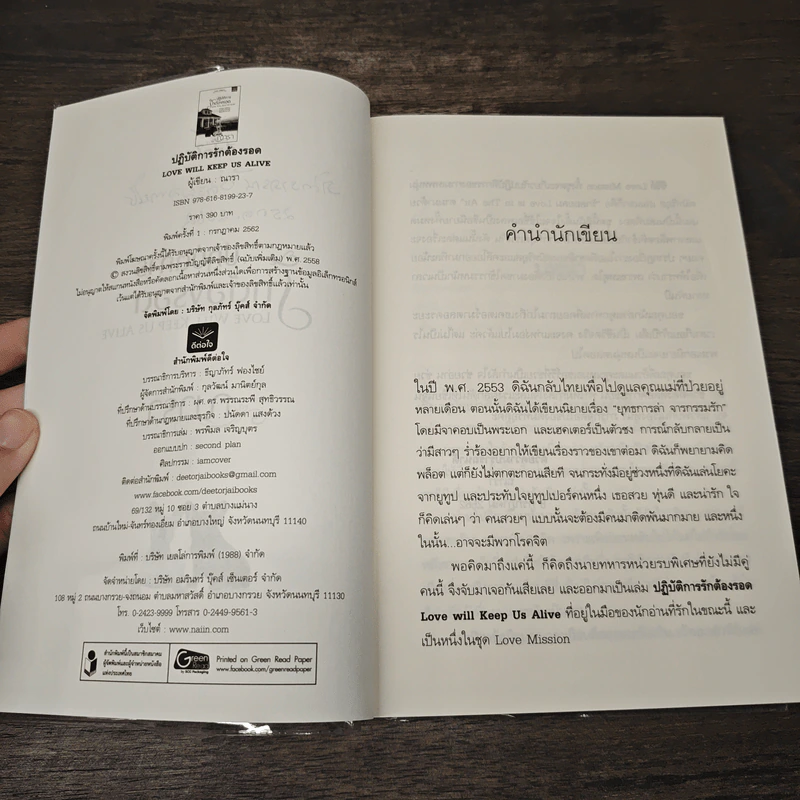 ปฏิบัติการรักต้องรอด
LOVE WILL KEEP US ALIVE
ผู้เขียน : ณารา
ISBN 978-616-8199-23-7
ราคา 390 บาท
พิมพ์ครั้งที่ 1 : กรกฎาคม 2562
พิมพ์โฆษณาครั้งนี้ได้รับอนุญาตจากเจ้าของลิขสิทธิ์ตามกฎหมายแล้ว
© สงวนลิขสิทธิ์ตามพระราชบัญญัติลิขสิทธิ์ (ฉบับเพิ่มเติม) พ.ศ. 2558
ไม่อนุญาตให้สแกนหนังสือหรือคัดลอกเนื้อหาส่วนหนึ่งส่วนใดเพื่อการสร้างฐานข้อมูลอิเล็กทรอนิกส์
เว้นแต่ได้รับอนุญาตจากสำนักพิมพ์และเจ้าของลิขสิทธิ์แล้วเท่านั้น
จัดพิมพ์โดย : บริษัท กุลภัทร์ บุ๊คส์ จำกัด
ดีต่อใจ
สำนักพิมพ์ดีต่อใจ
บรรณาธิการบริหาร : ธีญาภัทร์ ฟองไชย์
ผู้จัดการสำนักพิมพ์ : กุลวัฒน์ มานิตย์กุล
ที่ปรึกษาด้านบรรณาธิการ : ผศ.ดร.พรรณระพี สุทธิวรรณ
ที่ปรึกษาด้านกฎหมายและธุรกิจ : ปนัดดา แสงด้วง
บรรณาธิการเล่ม : พรพิมล เจริญบุตร
ออกแบบปก : second plan
ศิลปกรรม : iamcover
ติดต่อสำนักพิมพ์ : deetorjaibooks@gmail.com
www.facebook.com/deetorjaibooks
69/132 หมู่ 10 ซอย 3 ตำบลบางแม่นาง
ถนนบ้านใหม่-จันทร์ทองเอี่ยม อำเภอบางใหญ่ จังหวัดนนทบุรี 11140
พิมพ์ที่ : บริษัท เยลโล่การพิมพ์ (1988) จำกัด
จัดจำหน่ายโดย : บริษัท อมรินทร์ บุ๊คส์ เซ็นเตอร์ จำกัด
108 หมู่ 2 ถนนบางกรวย-จงถนอม ตำบลมหาสวัสดิ์ อำเภอบางกรวย จังหวัดนนทบุรี 11130
โทร. 0-2423-9999 โทรสาร 0-2449-9561-3
เว็บไซต์ : www.naiin.com
สำนักพิมพ์นี้เป็นสมาชิกสมาคม
ผู้จัดพิมพ์และผู้จำหน่ายหนังสือ
แห่งประเทศไทย
Green Read
by SCG Packaging
Printed on Green Read Paper
www.facebook.com/greenreadpaper
คำนำนักเขียน
ในปี พ.ศ. 2553 ดิฉันกลับไทยเพื่อไปดูแลคุณแม่ที่ป่วยอยู่
หลายเดือน ตอนนั้นดิฉันได้เขียนนิยายเรื่อง "ยุทธการล่า จารกรรมรัก"
โดยมีจาคอบเป็นพระเอก และเฮคเตอร์เป็นตัวชง การณ์กลับกลายเป็น
ว่ามีสาวๆ ร่ำร้องอยากให้เขียนเรื่องราวของเขาต่อมา ดิฉันก็พยายามคิด
พล็อต แต่ก็ยังไม่ตกตะกอนเสียที จนกระทั่งมีอยู่ช่วงหนึ่งที่ดิฉันเล่นโยคะ
จากยูทูป และประทับใจยูทูปเปอร์คนหนึ่ง เธอสวย หุ่นดี และน่ารัก ใจ
ก็คิดเล่นๆ ว่า คนสวยๆ แบบนั้นจะต้องมีคนมาติดพันมากมาย และหนึ่ง
ในนั้น...อาจจะมีพวกโรคจิต
พอคิดมาถึงแค่นี้ ก็คิดถึงนายทหารหน่วยรบพิเศษที่ยังไม่มีคู่
คนนี้ จึงจับมาเจอกันเสียเลย และออกมาเป็นเล่ม ปฏิบัติการรักต้องรอด
Love will Keep Us Alive ที่อยู่ในมือของนักอ่านที่รักในขณะนี้ และ
เป็นหนึ่งในชุด Love Mission